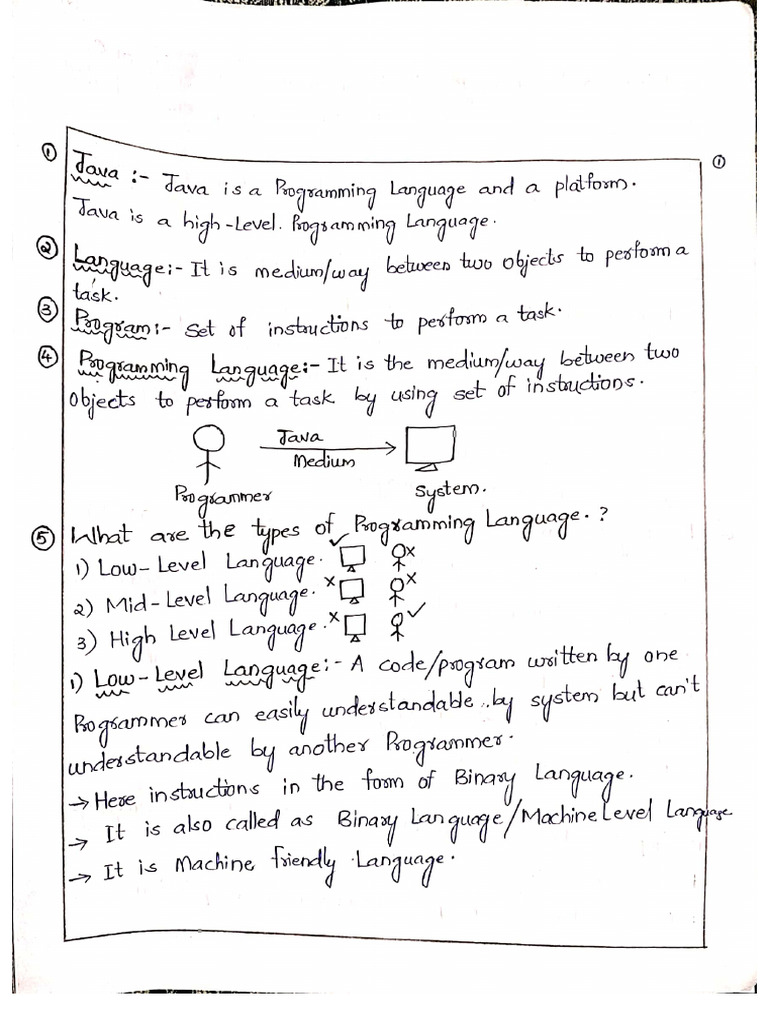 ① Java :- Java is a Programming Language and a platform. ①
Java is a high-Level. Programming Language.
② Language:- It is medium/way between two objects to perform a
task.
③ Program:- Set of instructions to perform a task.
④ Programming Language:- It is the medium/way between two
objects to perform a task by using set of instructions.
Java
Medium
Programmer System.
⑤ What are the types of Programming Language. ?
1) Low-Level Language. ✓ x
2) Mid-Level Language. x x
3) High Level Language. x ✓
1) Low-Level Language:- A code/program written by one
Programmer can easily understandable..by system but can't
understandable by another Programmer.
→ Here instructions in the form of Binary Language.
→ It is also called as Binary Language/Machine Level Language
→ It is Machine friendly Language.